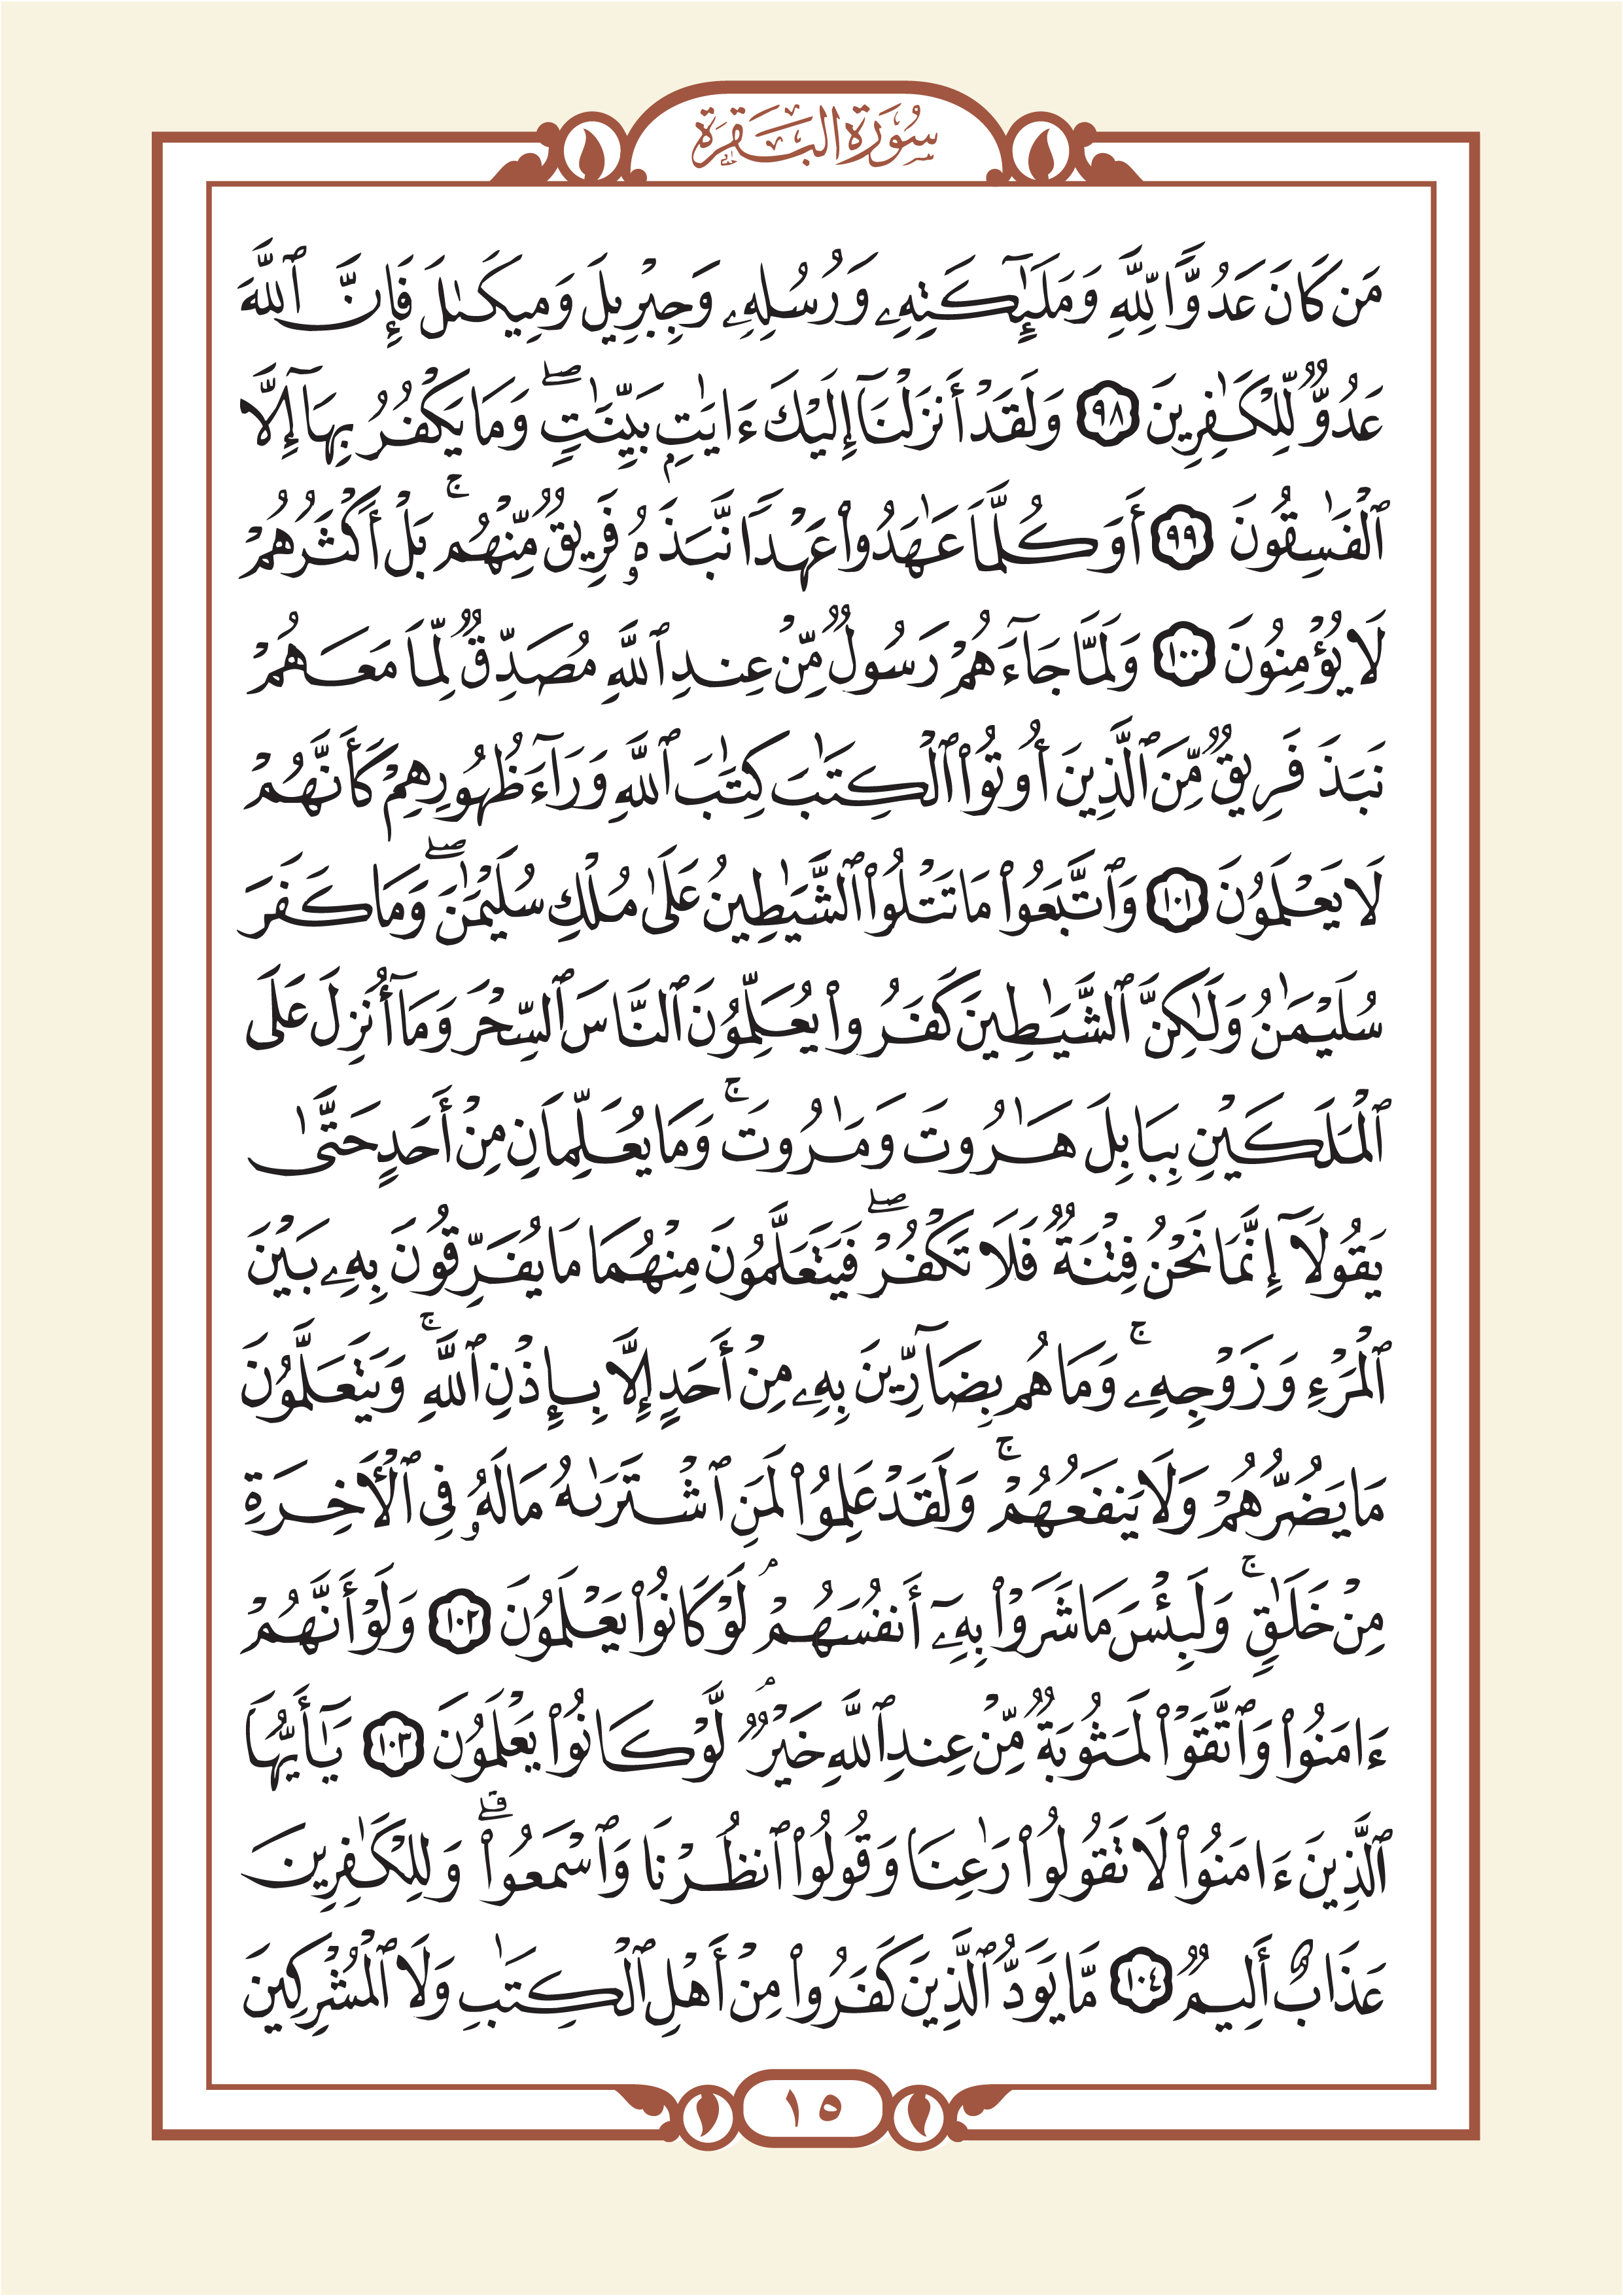 سُورَةُ البَقَرَةِ
مَن كَانَ عَدُوًّا لِّلَّهِ وَمَلَٰٓئِكَتِهِۦ وَرُسُلِهِۦ وَجِبْرِيلَ وَمِيكَىٰلَ فَإِنَّ ٱللَّهَ
عَدُوٌّ لِّلْكَٰفِرِينَ ٩٨ وَلَقَدْ أَنزَلْنَآ إِلَيْكَ ءَايَٰتٍۭ بَيِّنَٰتٍۖ وَمَا يَكْفُرُ بِهَآ إِلَّا
ٱلْفَٰسِقُونَ ٩٩ أَوَكُلَّمَا عَٰهَدُواْ عَهْدًا نَّبَذَهُۥ فَرِيقٌ مِّنْهُمۚ بَلْ أَكْثَرُهُمْ
لَا يُؤْمِنُونَ ١٠٠ وَلَمَّا جَآءَهُمْ رَسُولٌ مِّنْ عِندِ ٱللَّهِ مُصَدِّقٌ لِّمَا مَعَهُمْ
نَبَذَ فَرِيقٌ مِّنَ ٱلَّذِينَ أُوتُواْ ٱلْكِتَٰبَ كِتَٰبَ ٱللَّهِ وَرَآءَ ظُهُورِهِمْ كَأَنَّهُمْ
لَا يَعْلَمُونَ ١٠١ وَٱتَّبَعُواْ مَا تَتْلُواْ ٱلشَّيَٰطِينُ عَلَىٰ مُلْكِ سُلَيْمَٰنَۖ وَمَا كَفَرَ
سُلَيْمَٰنُ وَلَٰكِنَّ ٱلشَّيَٰطِينَ كَفَرُواْ يُعَلِّمُونَ ٱلنَّاسَ ٱلسِّحْرَ وَمَآ أُنزِلَ عَلَى
ٱلْمَلَكَيْنِ بِبَابِلَ هَٰرُوتَ وَمَٰرُوتَۚ وَمَا يُعَلِّمَانِ مِنْ أَحَدٍ حَتَّىٰ
يَقُولَآ إِنَّمَا نَحْنُ فِتْنَةٌ فَلَا تَكْفُرْۖ فَيَتَعَلَّمُونَ مِنْهُمَا مَا يُفَرِّقُونَ بِهِۦ بَيْنَ
ٱلْمَرْءِ وَزَوْجِهِۦۚ وَمَا هُم بِضَآرِّينَ بِهِۦ مِنْ أَحَدٍ إِلَّا بِإِذْنِ ٱللَّهِۚ وَيَتَعَلَّمُونَ
مَا يَضُرُّهُمْ وَلَا يَنفَعُهُمْۚ وَلَقَدْ عَلِمُواْ لَمَنِ ٱشْتَرَىٰهُ مَا لَهُۥ فِى ٱلْأَخِرَةِ
مِنْ خَلَٰقٍۚ وَلَبِئْسَ مَا شَرَوْاْ بِهِۦٓ أَنفُسَهُمْۘ لَوْ كَانُواْ يَعْلَمُونَ ١٠٢ وَلَوْ أَنَّهُمْ
ءَامَنُواْ وَٱتَّقَوْاْ لَمَثُوبَةٌ مِّنْ عِندِ ٱللَّهِ خَيْرٌۘ لَّوْ كَانُواْ يَعْلَمُونَ ١٠٣ يَٰٓأَيُّهَا
ٱلَّذِينَ ءَامَنُواْ لَا تَقُولُواْ رَٰعِنَا وَقُولُواْ ٱنظُرْنَا وَٱسْمَعُواْۗ وَلِلْكَٰفِرِينَ
عَذَابٌ أَلِيمٌ ١٠٤ مَّا يَوَدُّ ٱلَّذِينَ كَفَرُواْ مِنْ أَهْلِ ٱلْكِتَٰبِ وَلَا ٱلْمُشْرِكِينَ
١٥